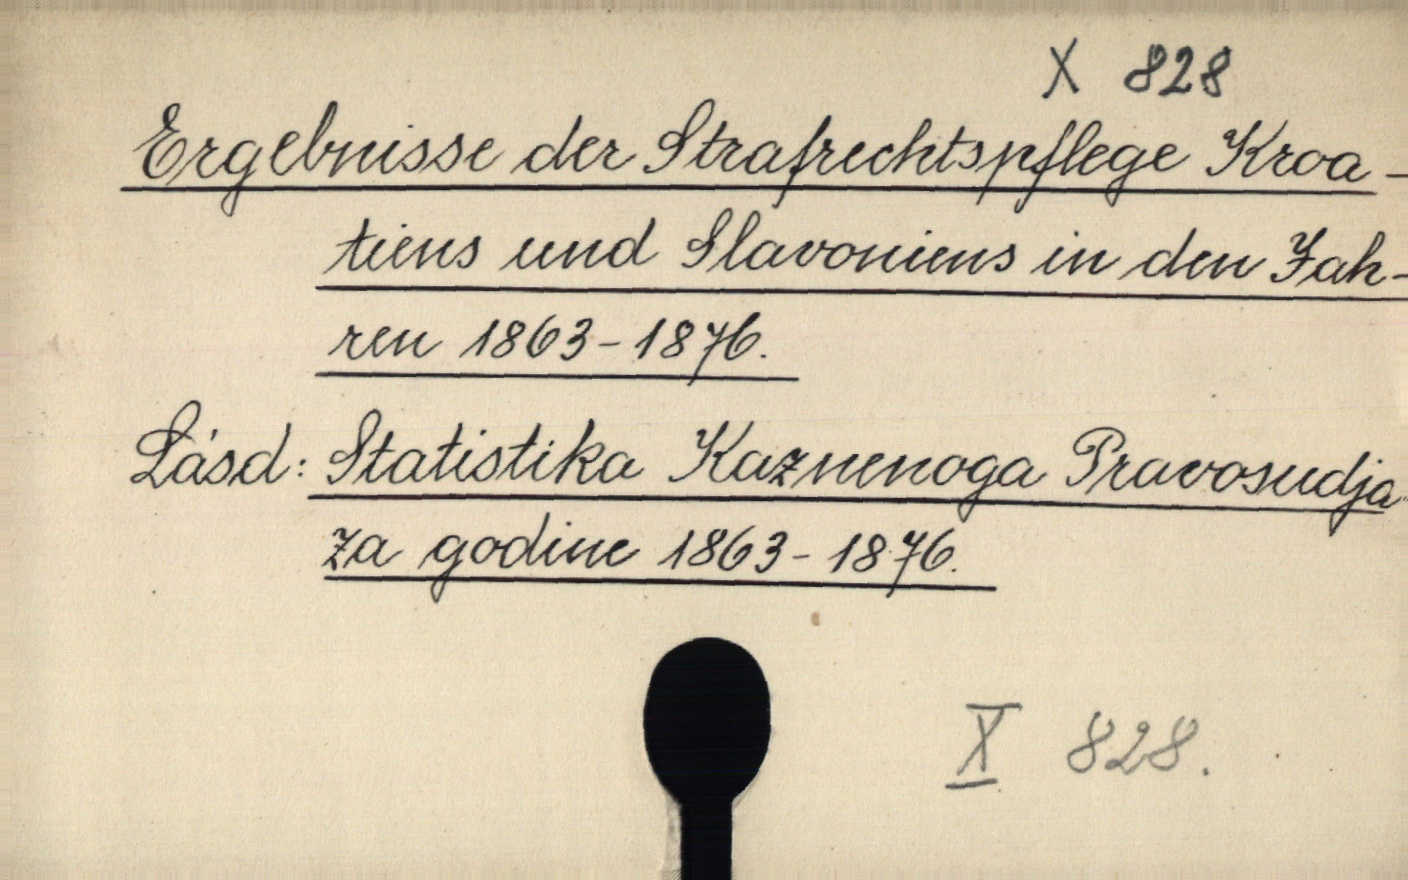 X 828
Ergebnisse der Strafrechtspflege Kroa-
tiens und Slavoniens in den Jah-
ren 1863-1876.
Lásd: Statistika Kaznenoga Pravosudja
za godine 1863-1876.
X 828.